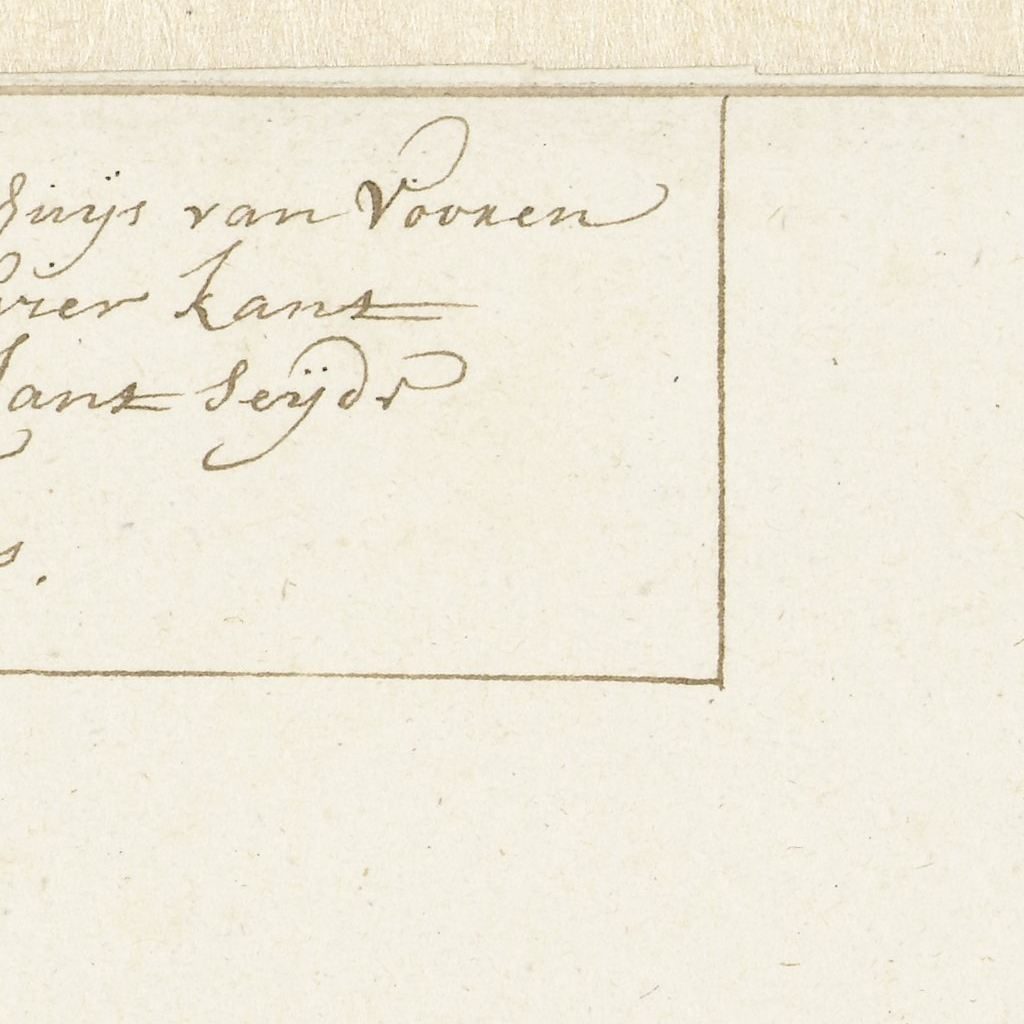 Huijs van Vooren
vier kant
kant Seijde